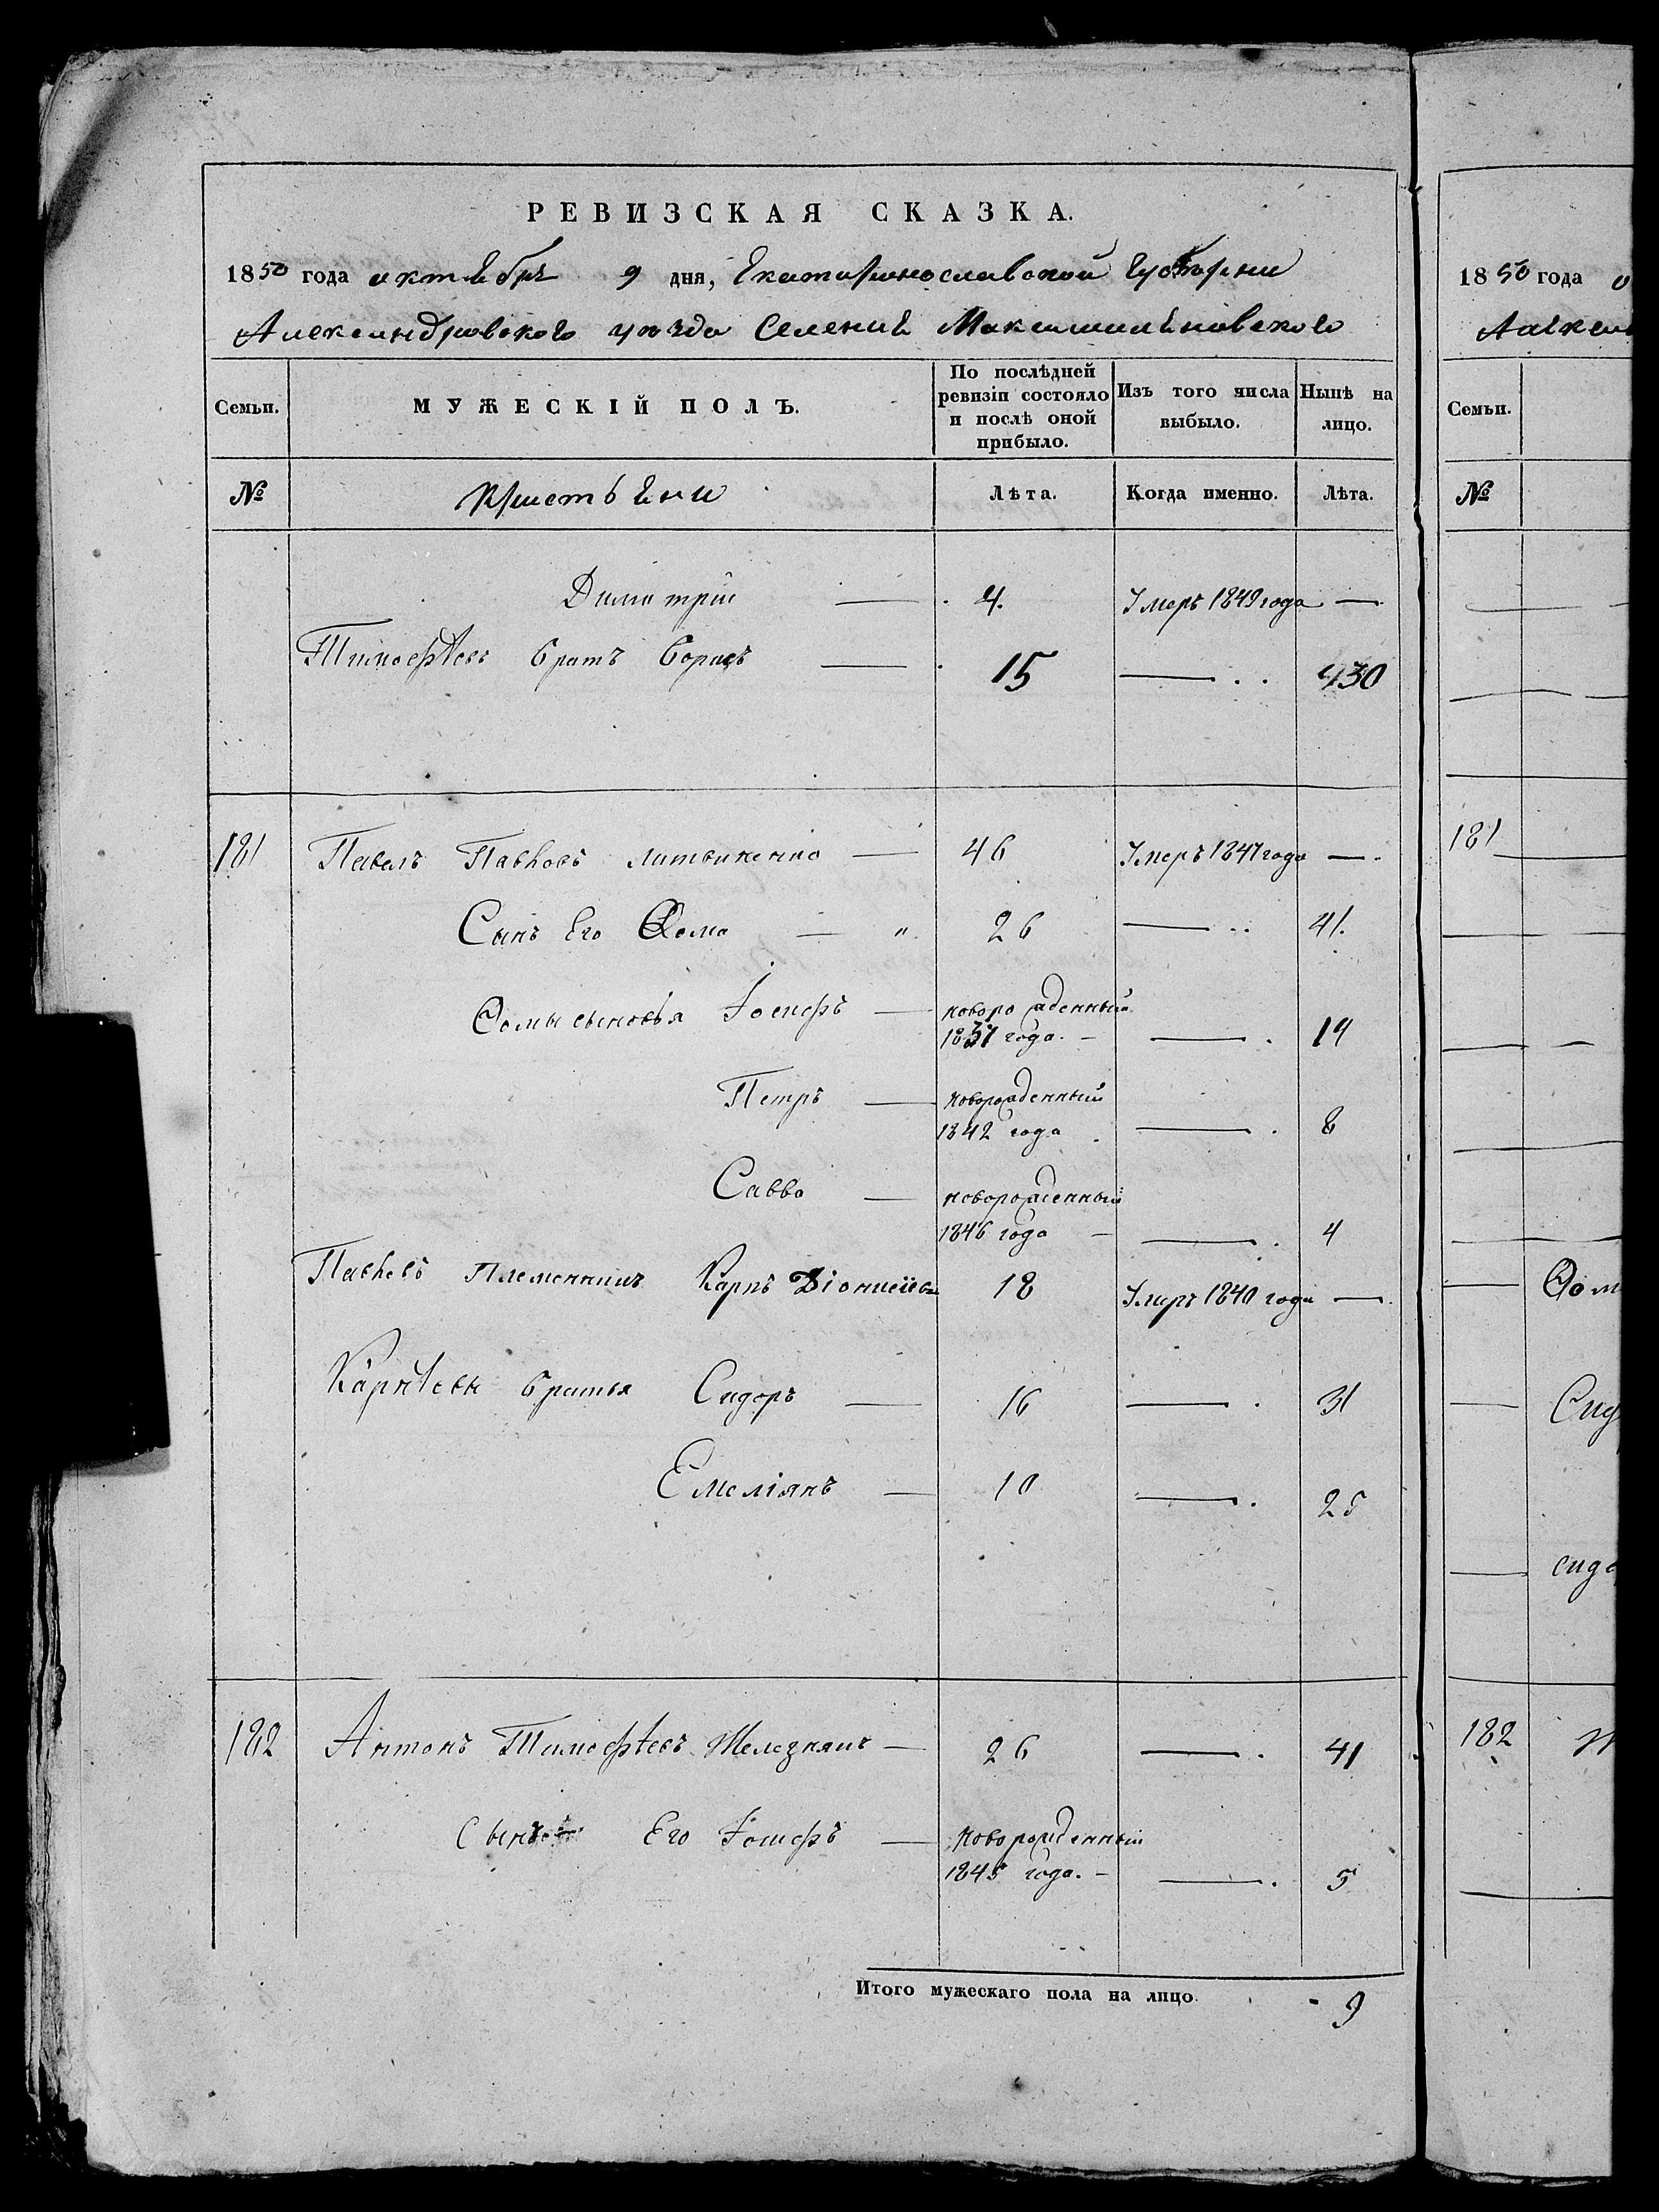 РЕВИЗСКАЯ СКАЗКА.
1850 года октября 9 дня, Екатеринославской Губернии
Александровского уезда Селения Максимильяновского
Семьи. МУЖЕСКІЙ ПОЛЪ. По послѣдней ревизіи состояло и послѣ оной прибыло. Изъ того числа выбыло. Нынѣ на лицо.
№ Крестьяни Лѣта. Когда именно. Лѣта.
Димитрій — 4. Умеръ 1849 года —
Тимофѣевъ братъ Борисъ — 15 — 30
181 Павелъ Павловъ Литвиненко — 46 Умеръ 1847 года —
Сынъ Его Ѳома — " 26 — 41.
Ѳомы сыновья Іосифъ — новорожденный
1831 года. — — 19
Петръ — новорожденный
1842 года — 8
Савва — новорожденный
1846 года — — 4
Павловъ Племянникъ Карпъ Діонисіевъ 18 Умеръ 1840 года —
Карпѣевы братья Сидоръ — 16 — 31
Емеліянъ — 10 — 25
182 Антонъ Тимофѣевъ Железнякъ — 26 — 41
Сынъ Его Іосифъ — новорожденный
1845 года. — — 5
Итого мужескаго пола на лицо 9
1850 года о
Алексан
Семьи.
№
181
Ѳом
Сид
сидо
182